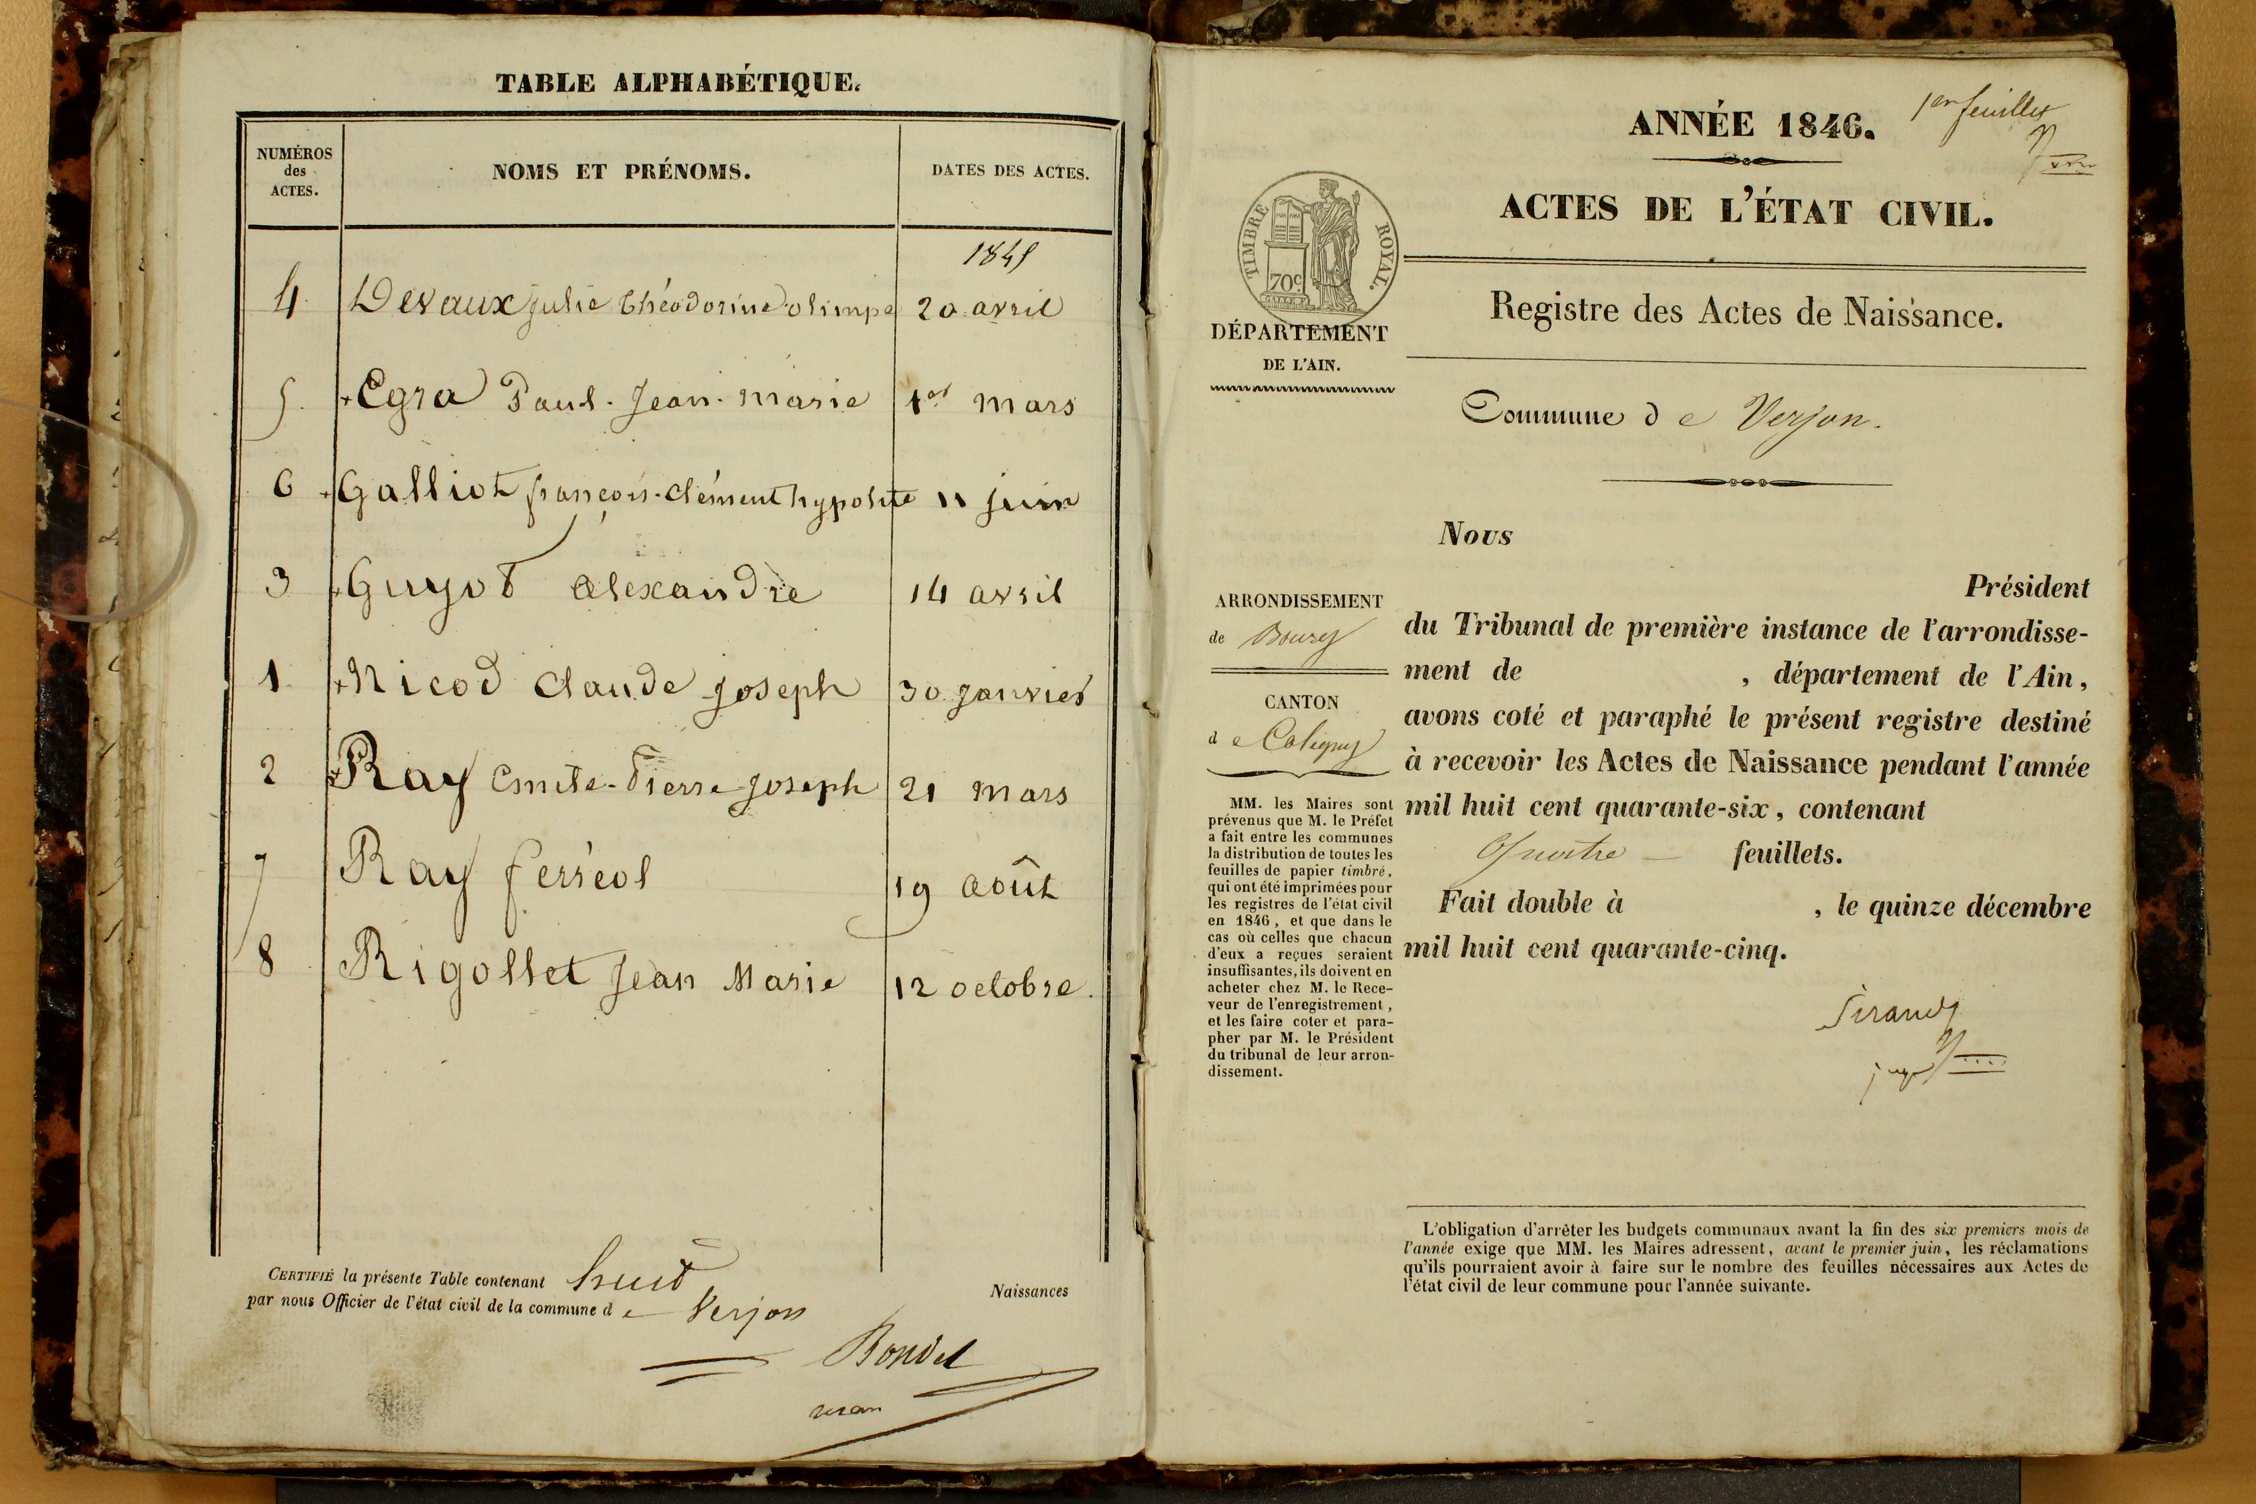 TABLE ALPHABÉTIQUE.
NUMÉROS des ACTES. NOMS ET PRÉNOMS. DATES DES ACTES.
1845
4 Devaux julie théodorine olimpe 20 avril
5. Egra Paul. Jean. marie 1er mars
6 Galliot françois. clément hypolite 11 juin
3 Guyot alexandre 14 avril
1 Nicod claude joseph 30 janvier
2 Ray Emile. Pierre joseph 21 mars
7 Ray ferréol 19 août
8 Rigollet Jean Marie 12 octobre.
CERTIFIÉ la présente Table contenant huit Naissances
par nous Officier de l'état civil de la commune de Verjon
Bondet
1er feuillet
ANNÉE 1846.
ACTES DE L'ÉTAT CIVIL.
TIMBRE ROYAL.
70c.
DÉPARTEMENT
DE L'AIN.
Registre des Actes de Naissance.
Commune de Verjon.
ARRONDISSEMENT
de Bourg
CANTON
de Coligny
MM. les Maires sont
prévenus que M. le Préfet
a fait entre les communes
la distribution de toutes les
feuilles de papier timbré,
qui ont été imprimées pour
les registres de l'état civil
en 1846, et que dans le
cas où celles que chacun
d'eux a reçues seraient
insuffisantes, ils doivent en
acheter chez M. le Rece-
veur de l'enregistrement,
et les faire coter et para-
pher par M. le Président
du tribunal de leur arron-
dissement.
Nous
Président
du Tribunal de première instance de l'arrondisse-
ment de , département de l'Ain,
avons coté et paraphé le présent registre destiné
à recevoir les Actes de Naissance pendant l'année
mil huit cent quarante-six, contenant
Quatre feuillets.
Fait double à , le quinze décembre
mil huit cent quarante-cinq.
juge
L'obligation d'arrêter les budgets communaux avant la fin des six premiers mois de
l'année exige que MM. les Maires adressent, avant le premier juin, les réclamations
qu'ils pourraient avoir à faire sur le nombre des feuilles nécessaires aux Actes de
l'état civil de leur commune pour l'année suivante.